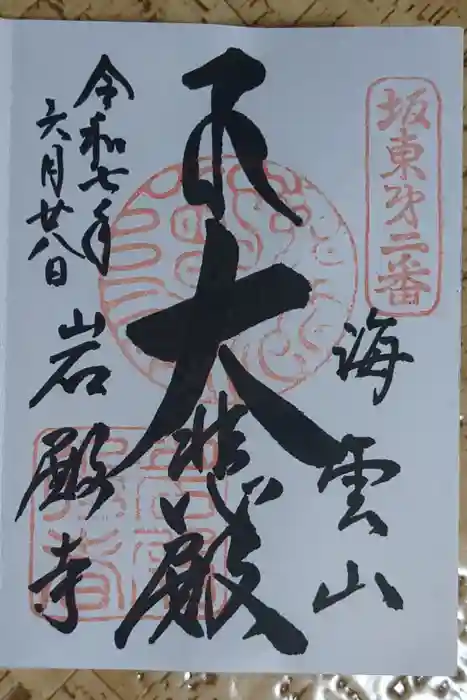 坂東第二番
海雲山
大悲殿
岩殿寺
令和七年
六月廿八日